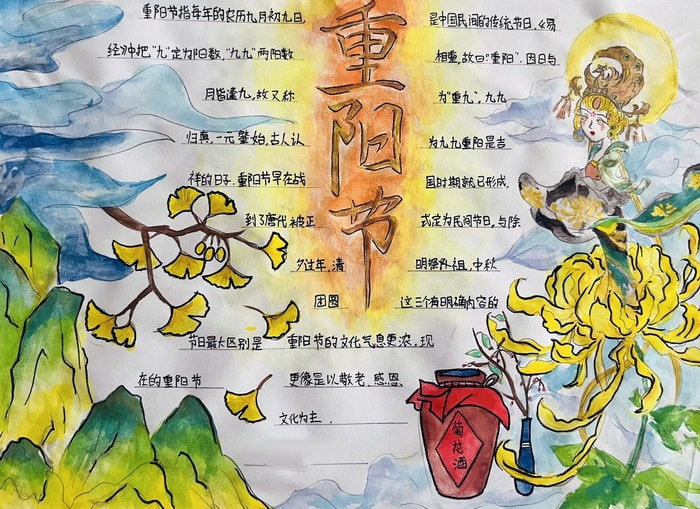 重阳节
重阳节指每年的农历九月初九日, 是中国民间的传统节日.《易
经》中把"九"定为阳数,"九九"两阳数 相重,故曰"重阳".因日与
月皆逢九,故又称 为"重九".九九
归真,一元肇始,古人认 为九九重阳是吉
祥的日子.重阳节早在战 国时期就已形成,
到了唐代被正 式定为民间节日,与除
夕过年,清 明祭外祖,中秋
团圆 这三个有明确内容的
节日最大区别是 重阳节的文化气息更浓,现
在的重阳节 更像是以敬老.感恩.
文化为主.
菊花酒